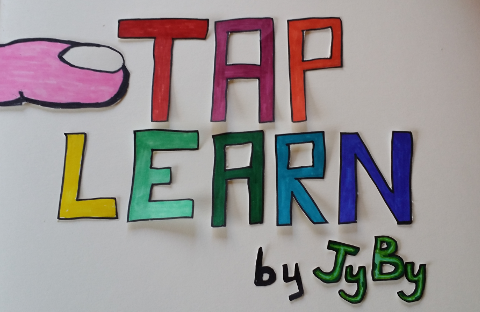 TAP
LEARN
by JyBy